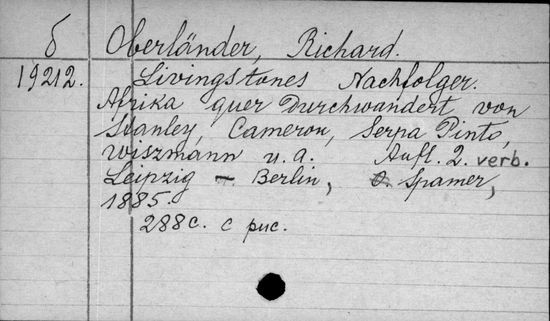 б Oberländer, Richard.
19212. Livingstones Nachfolger.
Afrika quer Durchwandert von
Stanley, Cameron, Serpa Pinto,
Wiszmann u. a. Aufl. 2. verb.
Leipzig – Berlin, O. Spamer,
1885.
288с. с рис.